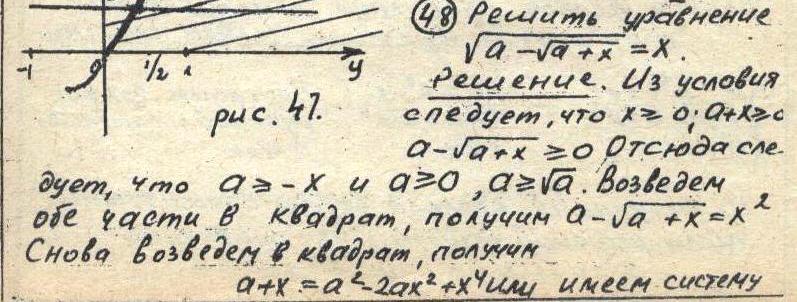 48 Решить уравнение
√(a - √(a+x)) = x.
Решение. Из условия
-1 0 1/2 1 y
рис. 47.
следует, что x ≥ 0; a+x ≥ 0
a - √(a+x) ≥ 0 Отсюда сле-
дует, что a ≥ -x и a ≥ 0, a ≥ √a. Возведем
обе части в квадрат, получим a - √(a+x) = x²
Снова возведем в квадрат, получим
a+x = a² - 2ax² + x⁴ или имеем систему